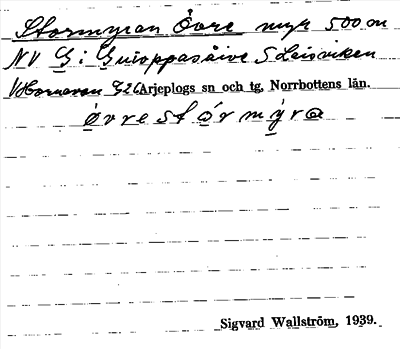 Stormyran Övre myr 500 m
NV G i Guioppasåive S Laisviken
V Hornavan G26 Arjeplogs sn och tg, Norrbottens län.
övrestórmýra
Sigvard Wallström, 1939.